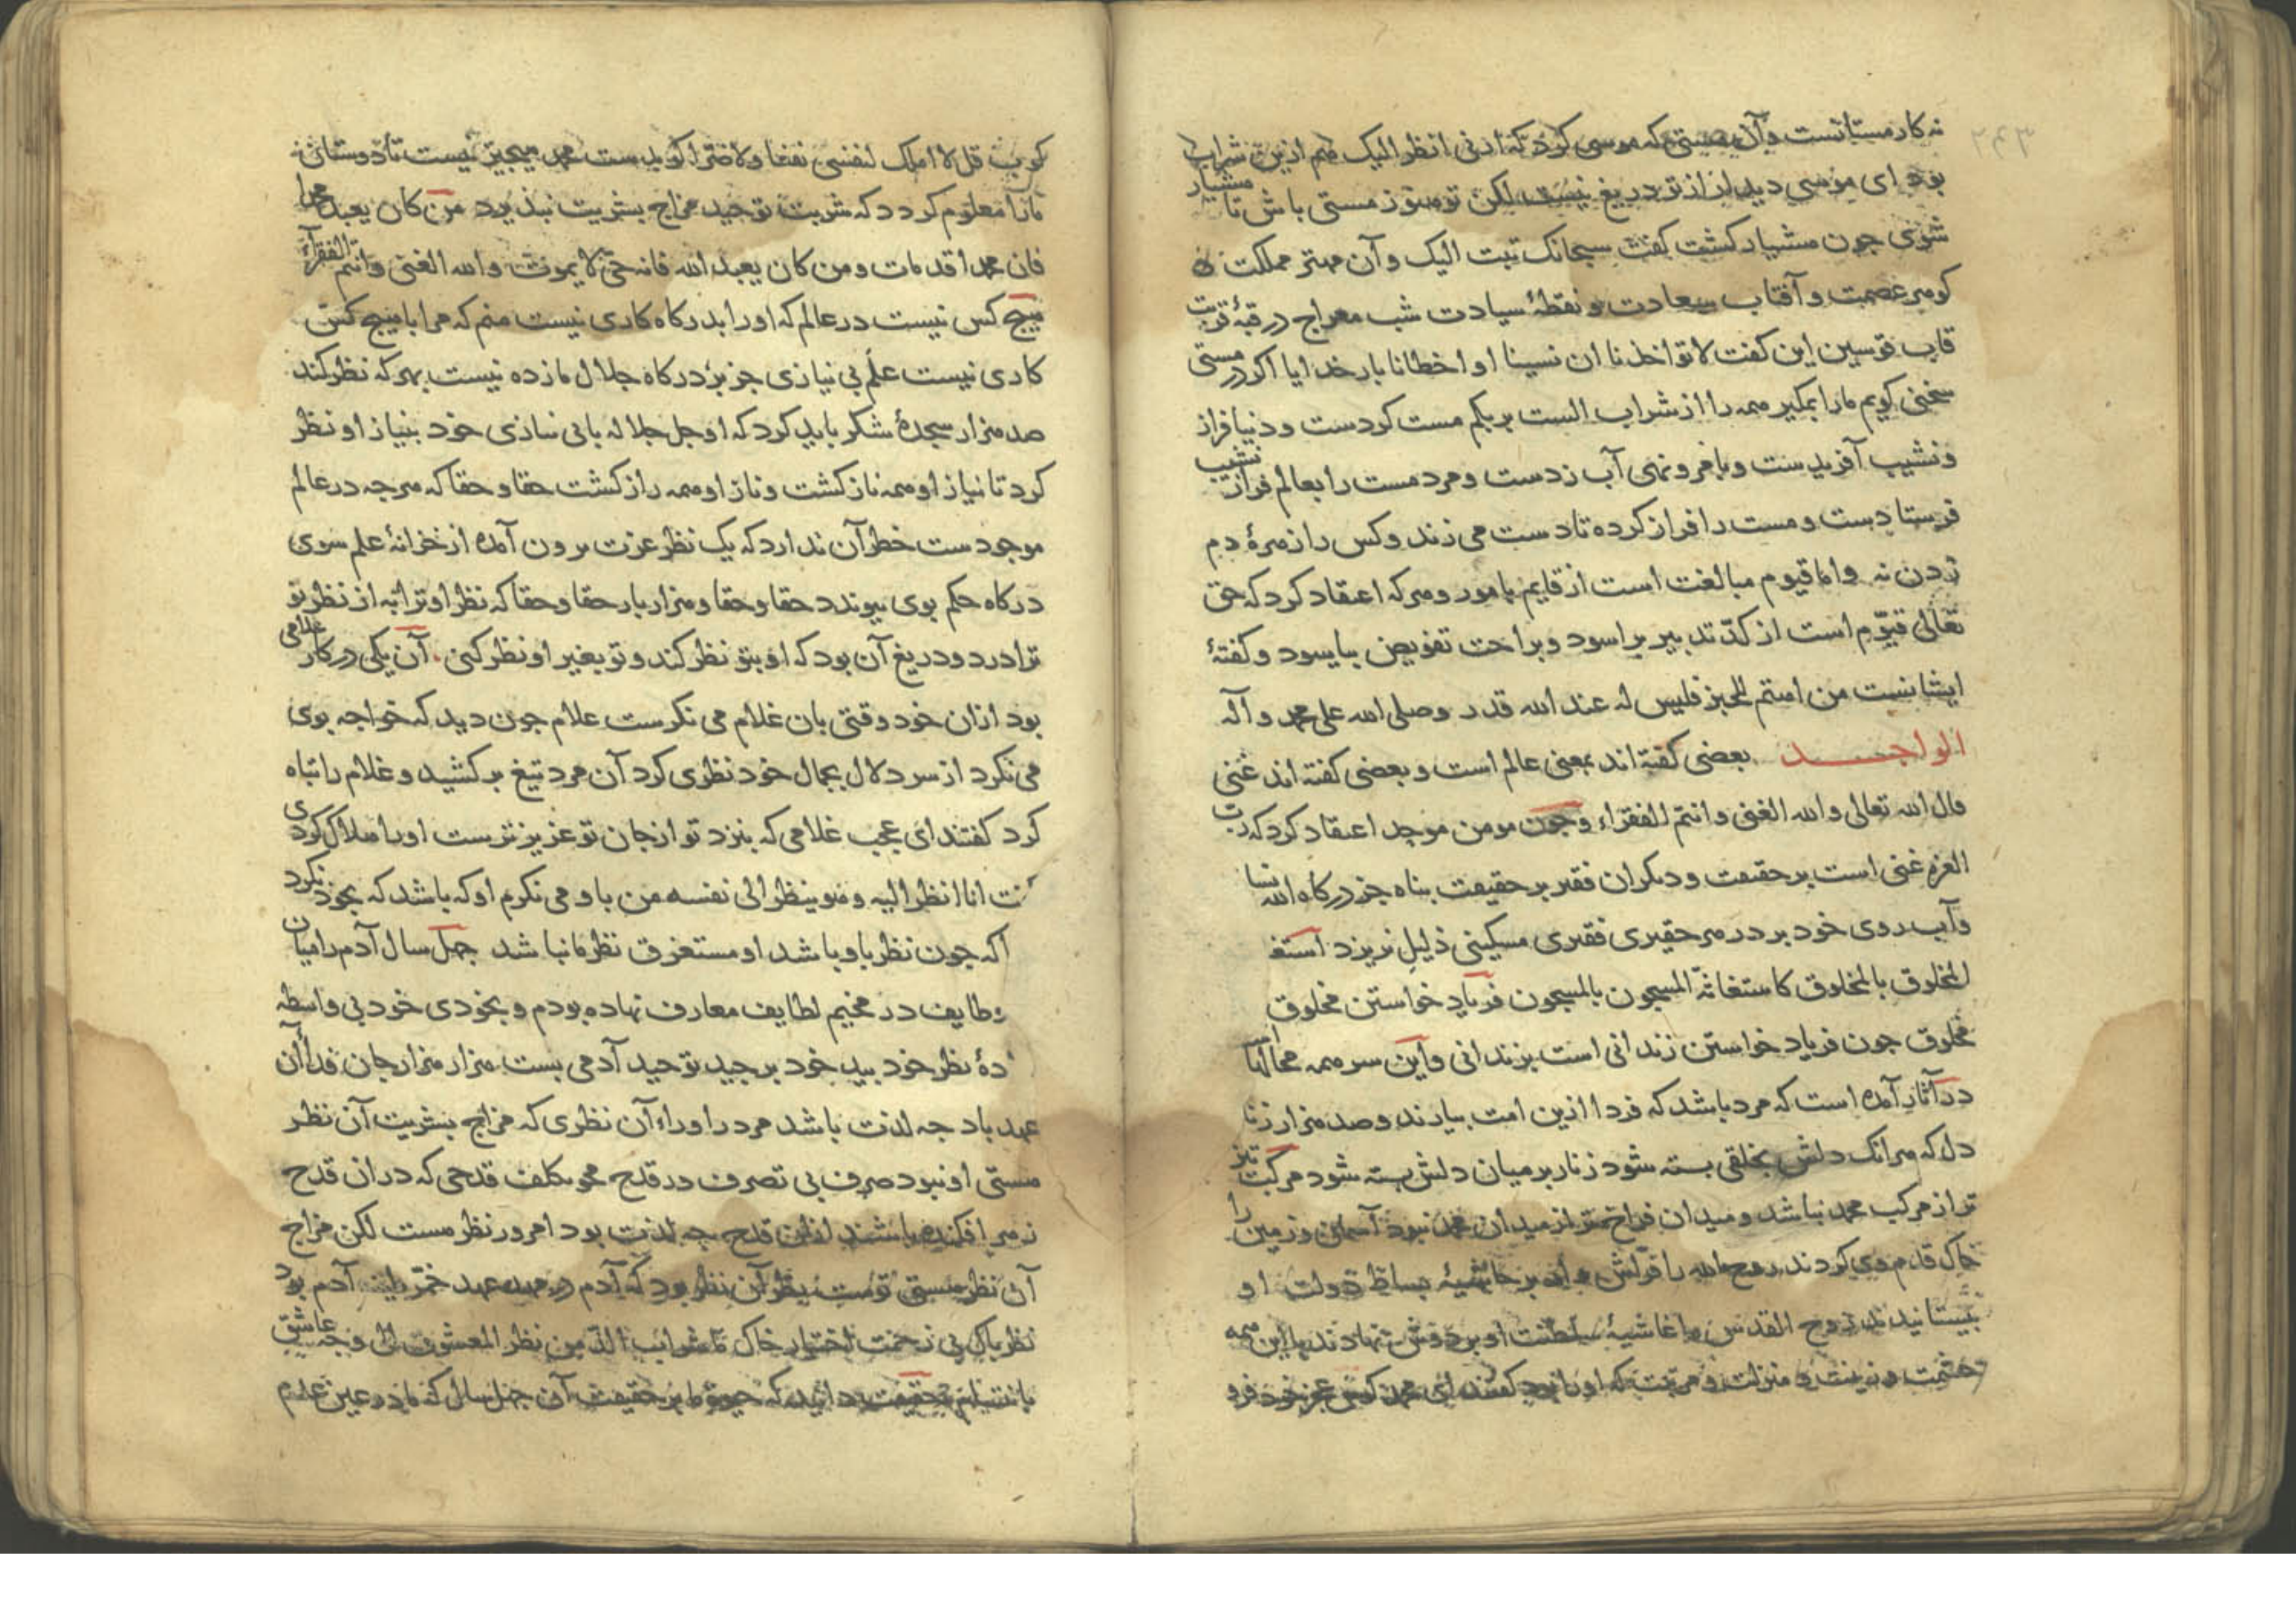 ۲۴۳
نه کار مستانست و آن که موسی کرد که ارنی انظر الیک هم ازین شراب
بود ای موسی دیدار از تو دریغ نیست لکن تو هنوز مستی باش تا هشیار
شوی جون هشیار کشت کفت سبحانک تبت الیک و آن مهتر مملکت
کوهر عصمت و آفتاب سعادت و نقطهٔ سیادت شب معراج در قبهٔ قربت
قاب قوسین این کفت لا تواخذنا ان نسینا او اخطانا بار خدایا اکر در مستی
سخنی کویم ما را بمکیر همه را از شراب الست بربکم مست کردست و دنیا فراز
و نشیب آفریدست و بامر و نهی آب زدست و مرد مست را بعالم فراز نشیب
فرستادست و مست را فراز کرده تا دست می زند و کس را زهرهٔ دم
زدن نه و اما قیوم مبالغت است از قایم بامور و هرکه اعتقاد کرد که حق
تعالی قیوم است از کد تدبیر براسود و براحت تفویض بیاسود و کفتهٔ
ایشانست من اهتم للخبز فلیس له عند الله قدر وصلی الله علی محمد و آله
الواجد بعضی کفته اند بمعنی عالم است و بعضی کفته اند غنی
قال الله تعالی والله الغنی وانتم الفقراء و جون مومن موحد اعتقاد کرد که رب
العزه غنی است بر حقیقت و دیکران فقیر بر حقیقت بناه جز درکاه الله نسا
و آب روی خود بر در هر حقیری فقیری مسکینی ذلیل نریزد استغا
المخلوق بالمخلوق کاستغاثة المسجون بالمسجون فریاد خواستن مخلوق
مخلوق جون فریاد خواستن زندانی است بزندانی و این سر همه
در آثار آمده است که مرد باشد که فردا ازین امت بیارند و صد هزار زنا
دل که هرانک دلش بخلقی بسته شود زنار بر میان دلش بسته شود مرکب تیز
تر از مرکب محمد نباشد و میدان فراخ تر از میدان محمد نبود آسمان و زمین را
خاک قدم وی کردند روح الله را فراش وار بر حاشیهٔ بساط دولت او
بیستانیدند روح القدس را غاشیهٔ سلطنت او بر دوش نهادند با این همه
حشمت و زینت و منزلت و مرتبت که او را بود کفتند ای محمد کوس عجز خود فرو
کوب قل لا املک لنفسی نفعا ولا ضرا کو بدست محمد هیجیز نیست تا دوستان
ما را معلوم کردد که شربت توحید مزاج بشریت نبذیرد من کان یعبد محمدا
فان محمدا قد مات ومن کان یعبد الله فانه حی لا یموت والله الغنی وانتم الفقرآء
هیج کس نیست در عالم که او را بدرکاه کاری نیست منم که مرا با هیج کس
کاری نیست علم بی نیازی جز بر درکاه جلال ما زده نیست بهرکه نظر کند
صد هزار سجدهٔ شکر باید کرد که او جل جلاله با بی نیازی خود بنیاز او نظر
کرد تا نیاز او همه ناز کشت و ناز او همه راز کشت حقا و حقا که هرجه در عالم
موجودست خطر آن ندارد که یک نظر عزت برون آمده از خزانهٔ علم سوی
درکاه حکم بوی بیوندد حقا و حقا و هزار بار حقا و حقا که نظر او ترا به از نظر تو
ترا درد و دریغ آن بود که او بتو نظر کند و تو بغیر او نظر کنی. آن یکی در کار غلامی
بود ازان خود وقتی بان غلام می نکرست غلام جون دید که خواجه بوی
می نکرد از سر دلال بجمال خود نظری کرد آن مرد تیغ برکشید و غلام را تباه
کرد کفتند ای عجب غلامی که بنزد تو از جان تو عزیزترست او را هلاک کردی
انا انظر الیه وهو ینظر الی نفسه من باو می نکرم او که باشد که بخود نکرد
که جون نظر باو باشد او مستغرق نظر ما نباشد جهل سال آدم را میان
طایف در مخیم لطایف معارف نهاده بودم و بخودی خود بی واسطه
دهٔ نظر خود بید خود بر جید توحید آدمی بست هزار هزار جان فدا آن
عهد باد جه لذت باشد مرد را وراء آن نظری که مزاج بشریت آن نظر
مستی او نبود صرف بی تصرف در قدح محو تکلف قدحی که در ان قدح
زهر افکنده باشند ازان قدح جه لذت بود امروز نظر هست لکن مزاج
آن نظر هستی تست نظر آن نظر بود که آدم در مهد عهد خمر طینة آدم بود
نظر باک بی زحمت اختیار خاک ما شراب الذ من نظر المعشوق الی وجه عاشق
که جهل سال که ما در عین عدم